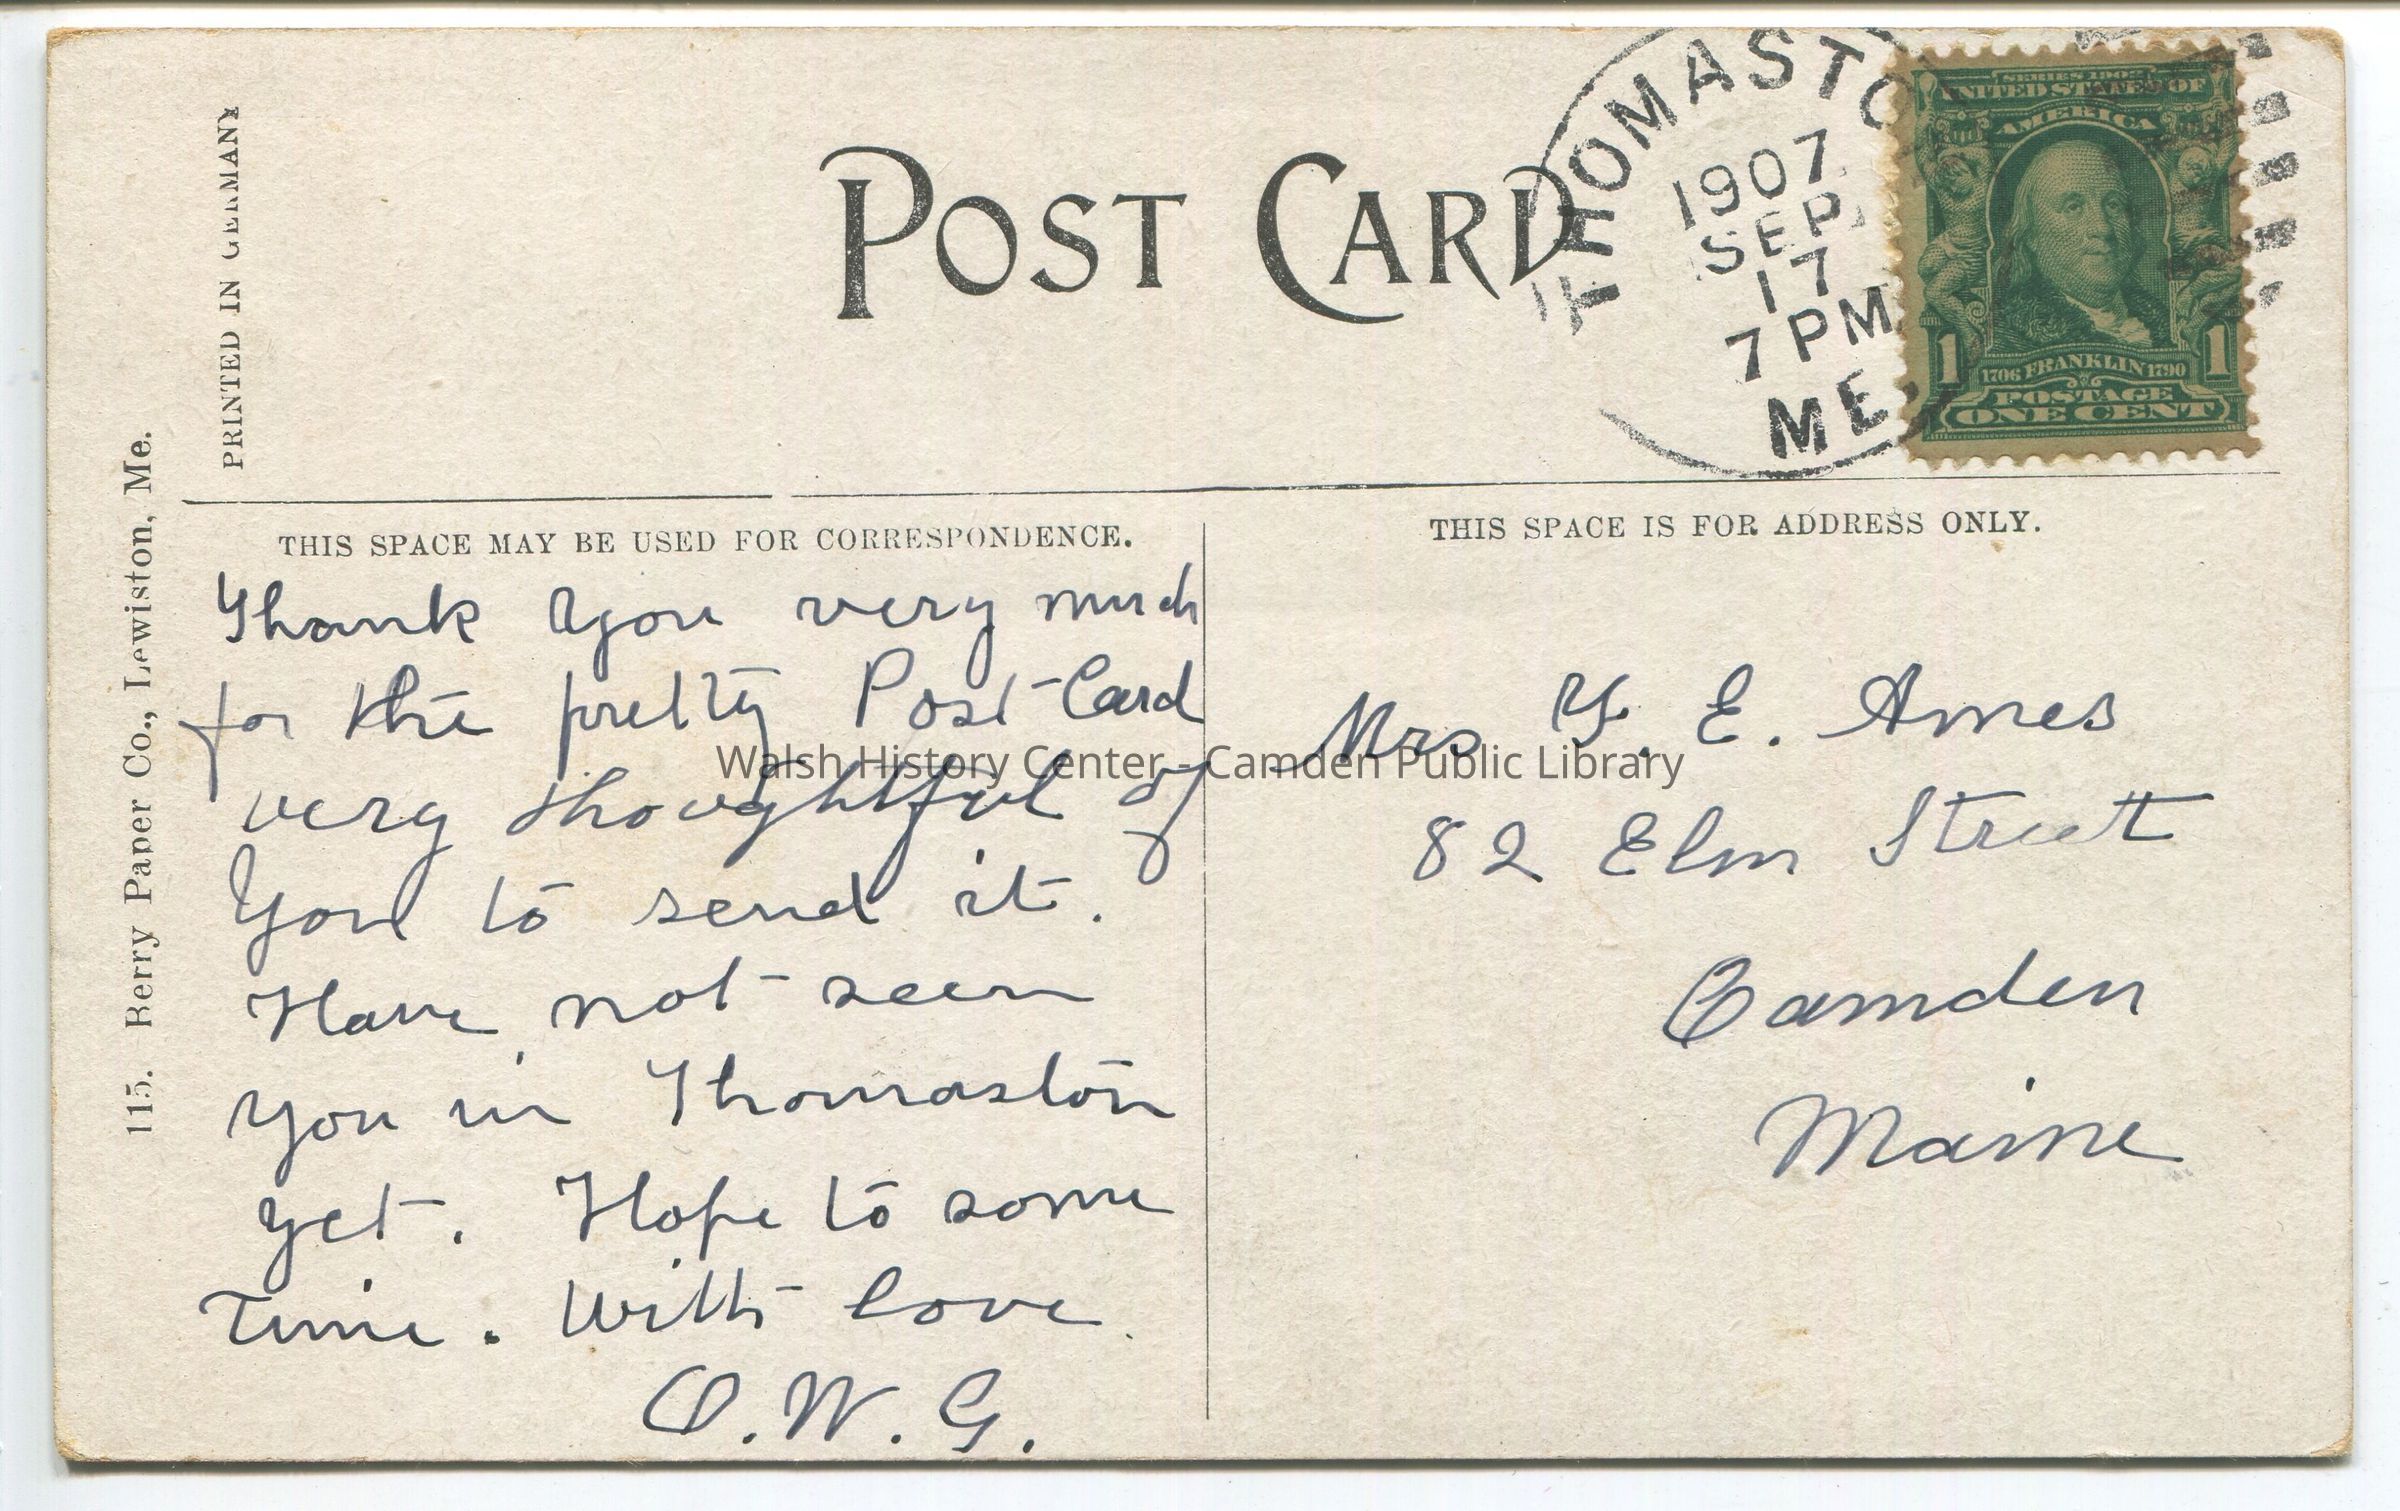 POST CARD
PRINTED IN GERMANY
115. Berry Paper Co., Lewiston, Me.
THOMASTO
1907
SEP
17
7 PM
ME.
SERIES 1902
UNITED STATES OF
AMERICA
1 1
1706 FRANKLIN 1790
POSTAGE
ONE CENT
THIS SPACE MAY BE USED FOR CORRESPONDENCE.
Thank you very much
for the pretty Post-Card
very thoughtful of
you to send it.
Have not seen
you in Thomaston
yet. Hope to some
time. With love.
O. W. G.
THIS SPACE IS FOR ADDRESS ONLY.
Mrs E. Ames
82 Elm Street
Camden
Maine
Walsh History Center - Camden Public Library